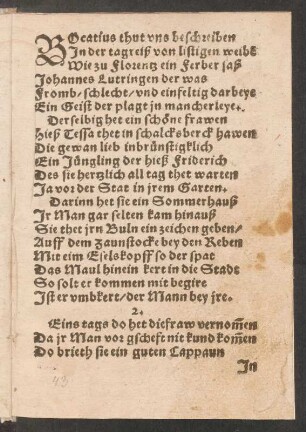 BOcatius thut vns beschreiben
In der tagreiß von listigen weibẽ
Wie zu Florentz ein Ferber saß
Johannes Lutringen der was
Fromb/ schlecht/ vnd einfeltig darbey
Ein Geist der plagt jn mancherleye.
Derselbig het ein schöne frawen
Hieß Tessa thet in schalcksberck hawen
Die gewan lieb inbrünstigklich
Ein Jüngling der hieß Friderich
Des sie hertzlich all tag thet warten
Ja vor der Stat in jrem Garten.
Darinn het sie ein Sommerhauß
Jr Man gar selten kam hinauß
Sie thet jrn Buln ein zeichen geben/
Auff dem zaunstocke bey den Reben
Mit eim Eselskopff so der spat
Das Maul hinein kert in die Stadt
So solt er kommen mit begire
Ist er vmbkert/ der Mann bey jre.
2.
Eins tags do het die fraw vernom̃en
Da jr Man vor gscheft nit kund kom̃en
Do brieth sie ein guten Cappaun
In
43